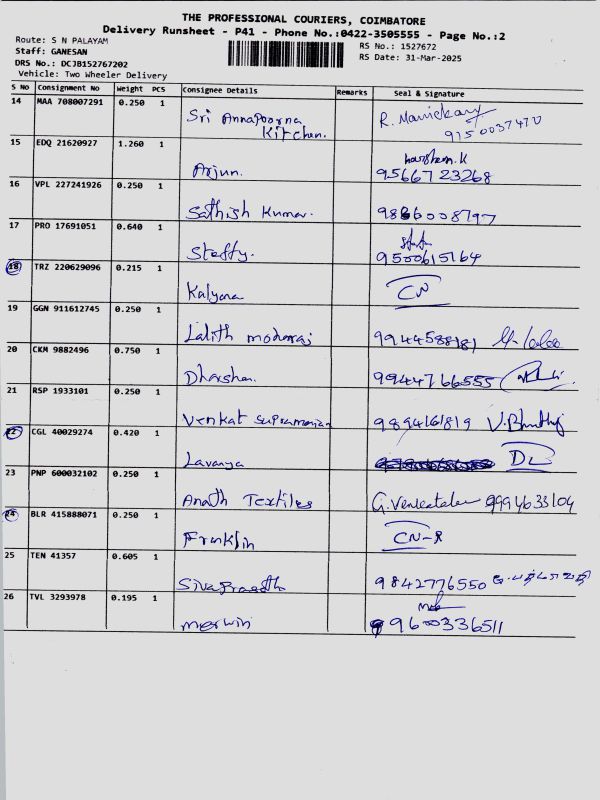 THE PROFESSIONAL COURIERS, COIMBATORE
Delivery Runsheet - P41 - Phone No.:0422-3505555 - Page No.:2
Route: S N PALAYAM
RS No.: 1527672
Staff: GANESAN
RS Date: 31-Mar-2025
DRS No.: DCJB152767202
Vehicle: Two Wheeler Delivery
S No Consignment No Weight PCS Consignee Details Remarks Seal & Signature
14 MAA 708007291 0.250 1 Sri Annapoorna Kitchen. R. Manickam
9150037470
15 EDQ 21620927 1.260 1 Arjun. 9566723268
16 VPL 227241926 0.250 1 Sathish Kumar. 9866008797
17 PRO 17691051 0.640 1 Steffy. 9500615164
18 TRZ 220629096 0.215 1 Kalyana CN
19 GGN 911612745 0.250 1 Lalith mohanraj 9944588181
20 CKM 9882496 0.750 1 Dharshan. 9944766555
21 RSP 1933101 0.250 1 Venkat Supramanian 9894161819
22 CGL 40029274 0.420 1 Lavanya DL
23 PNP 600032102 0.250 1 Anath Textiles G. Venkatalam 9994633104
24 BLR 415888071 0.250 1 Franklin CN-R
25 TEN 41357 0.605 1 SivaPrasath 9842776550
26 TVL 3293978 0.195 1 merwin 9600336511